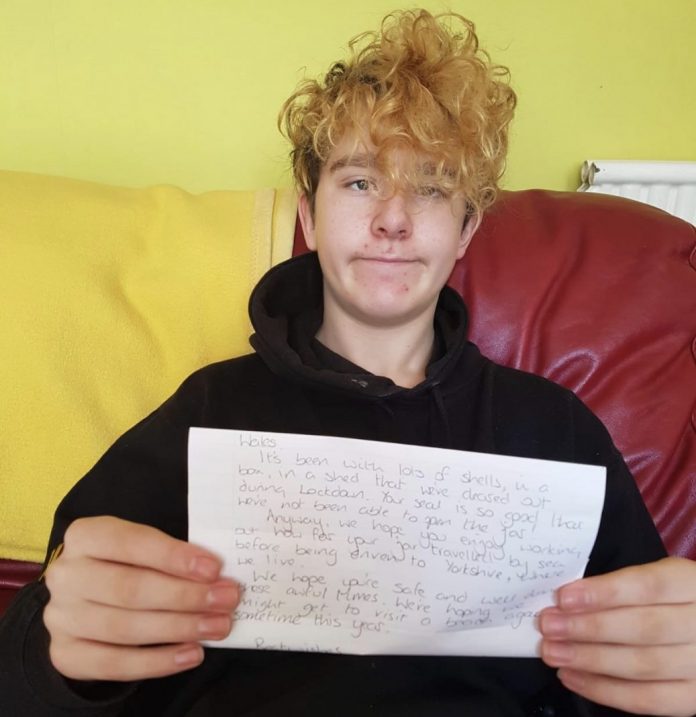 Wales.
It's been with lots of shells, in a
box, in a shed that were cleared out
during Lockdown. Your seal is so good that
we're not been able to open the jar!
Anyway, we hope you enjoy working
out how far your jar travelled by sea
before being driven to Yorkshire, where
we live.
We hope you're safe and well
these awful times. We're hoping we
might get to visit a beach again
sometime this year.
Best wishes